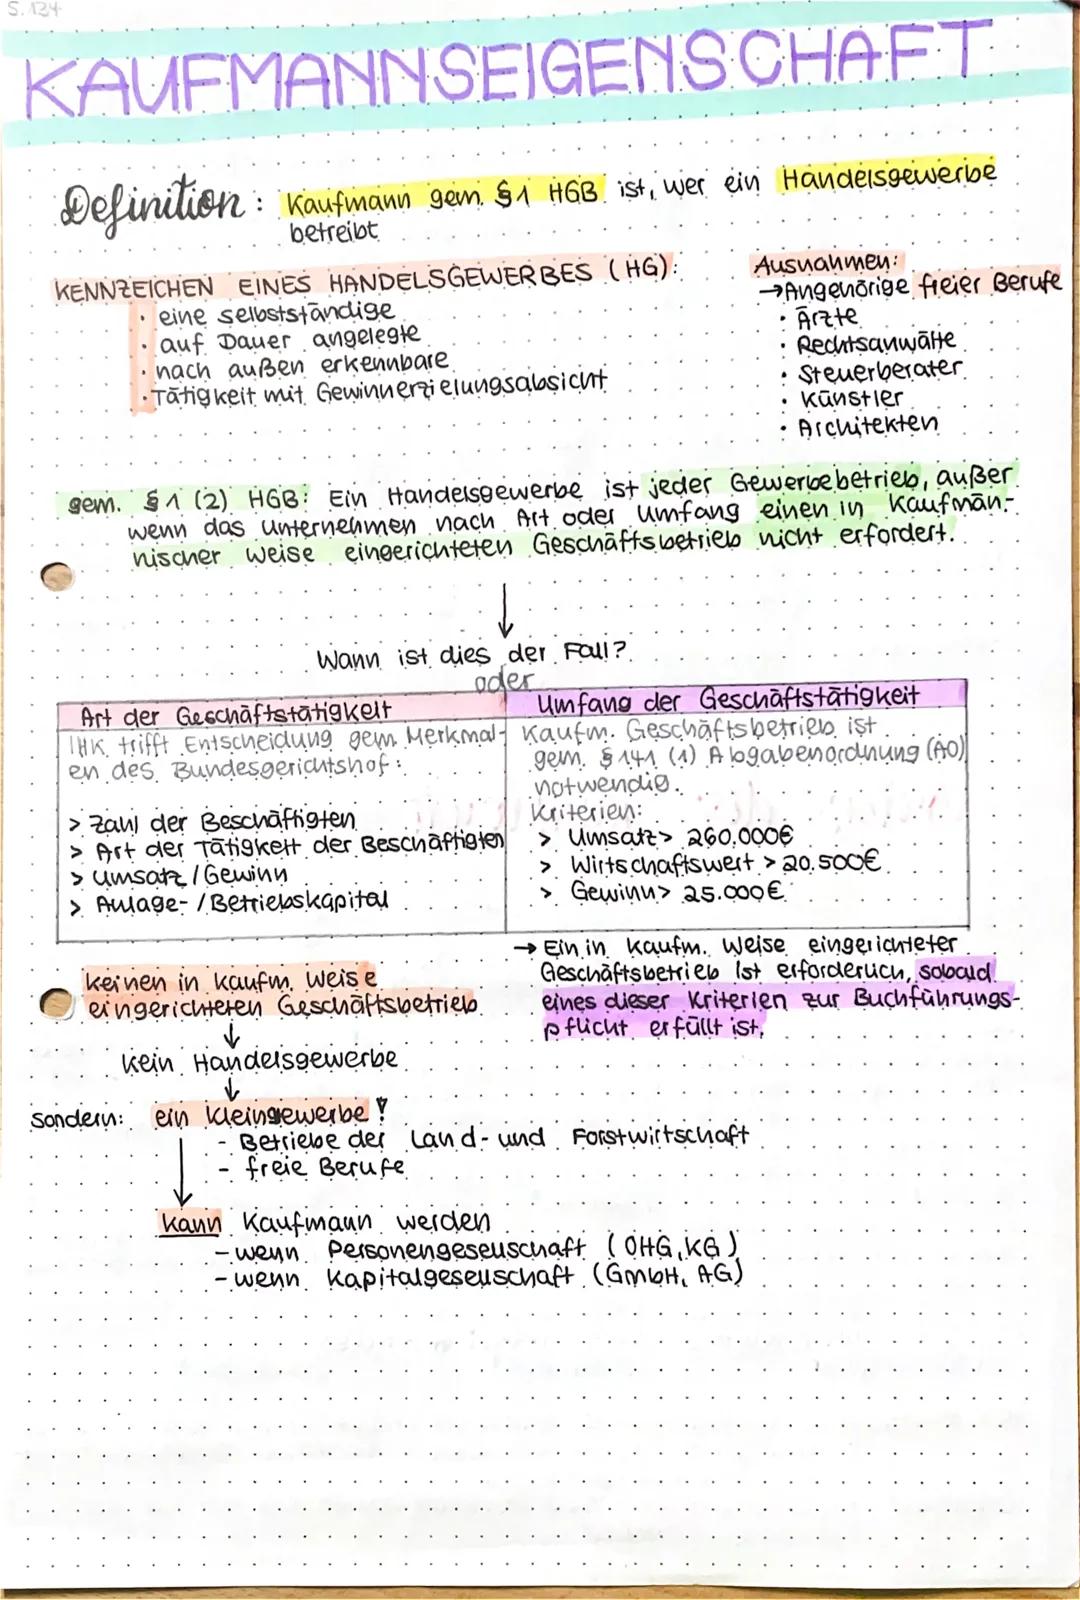 S. 134
KAUFMANNSEIGENSCHAFT
Definition: Kaufmann gem. §1 HGB ist, wer ein Handelsgewerbe
betreibt
KENNZEICHEN EINES HANDELSGEWERBES (HG):
· eine selbstständige
· auf Dauer angelegte
· nach außen erkennbare
· Tätigkeit mit Gewinnerzielungsabsicht
Ausnahmen:
→ Angehörige freier Berufe
· Ärzte
· Rechtsanwälte
· Steuerberater
· Künstler
· Architekten
gem. §1 (2) HGB: Ein Handelsgewerbe ist jeder Gewerbebetrieb, außer
wenn das Unternehmen nach Art oder Umfang einen in Kaufmän-
nischer Weise eingerichteten Geschäftsbetrieb nicht erfordert.
↓
Wann ist dies der Fall?
oder
Art der Geschäftstätigkeit
IHK trifft Entscheidung gem. Merkmal-
en des Bundesgerichtshof:
> Zahl der Beschäftigten
> Art der Tätigkeit der Beschäftigten
> Umsatz / Gewinn
> Anlage- / Betriebskapital
Umfang der Geschäftstätigkeit
Kaufm. Geschäftsbetrieb ist
gem. §141 (1) Abgabenordnung (AO)
notwendig.
Kriterien:
> Umsatz > 260.000€
> Wirtschaftswert > 20.500€
> Gewinn > 25.000€
→ Ein in Kaufm. Weise eingerichteter
Geschäftsbetrieb ist erforderlich, sobald
eines dieser Kriterien zur Buchführungs-
pflicht erfüllt ist.
keinen in kaufm. Weise
eingerichteten Geschäftsbetrieb
↓
kein Handelsgewerbe
↓
sondern: ein Kleingewerbe!
- Betriebe der Land- und Forstwirtschaft
- freie Berufe
kann Kaufmann werden
- wenn Personengesellschaft (OHG, KG)
- wenn Kapitalgesellschaft (GmbH, AG)